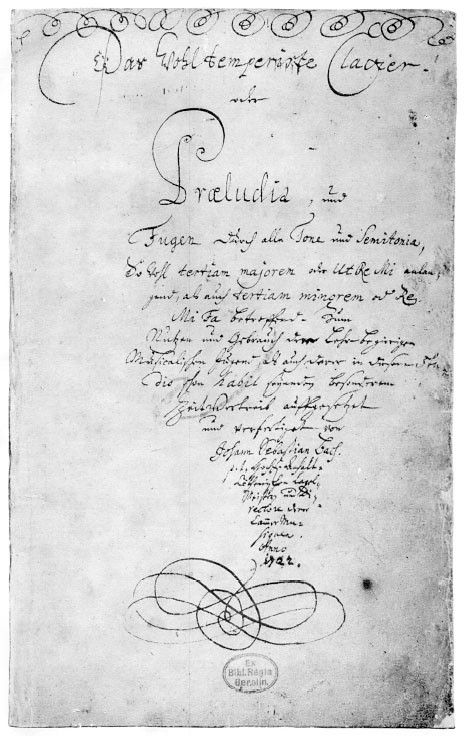 Das Wohltemperirte Clavier.
oder
Præludia, und
Fugen durch alle Tone und Semitonia,
So wohl tertiam majorem oder Ut Re Mi anlan-
gend, als auch tertiam minorem od Re
Mi Fa betreffend. Zum
Nutzen und Gebrauch der Lehr-begierigen
Musicalischen Jugend, als auch derer in diesem stu-
dio schon habil seyenden besonderem
Zeitvertreib auffgesetzet
und verfertiget von
Johann Sebastian Bach.
p. t. Hochfürstlich
Cöthenischen Capel-
Meistern und Di-
rectore derer
Cammer Mu-
siquen.
Anno
1722.
Ex
Bibl. Regia
Berolin.